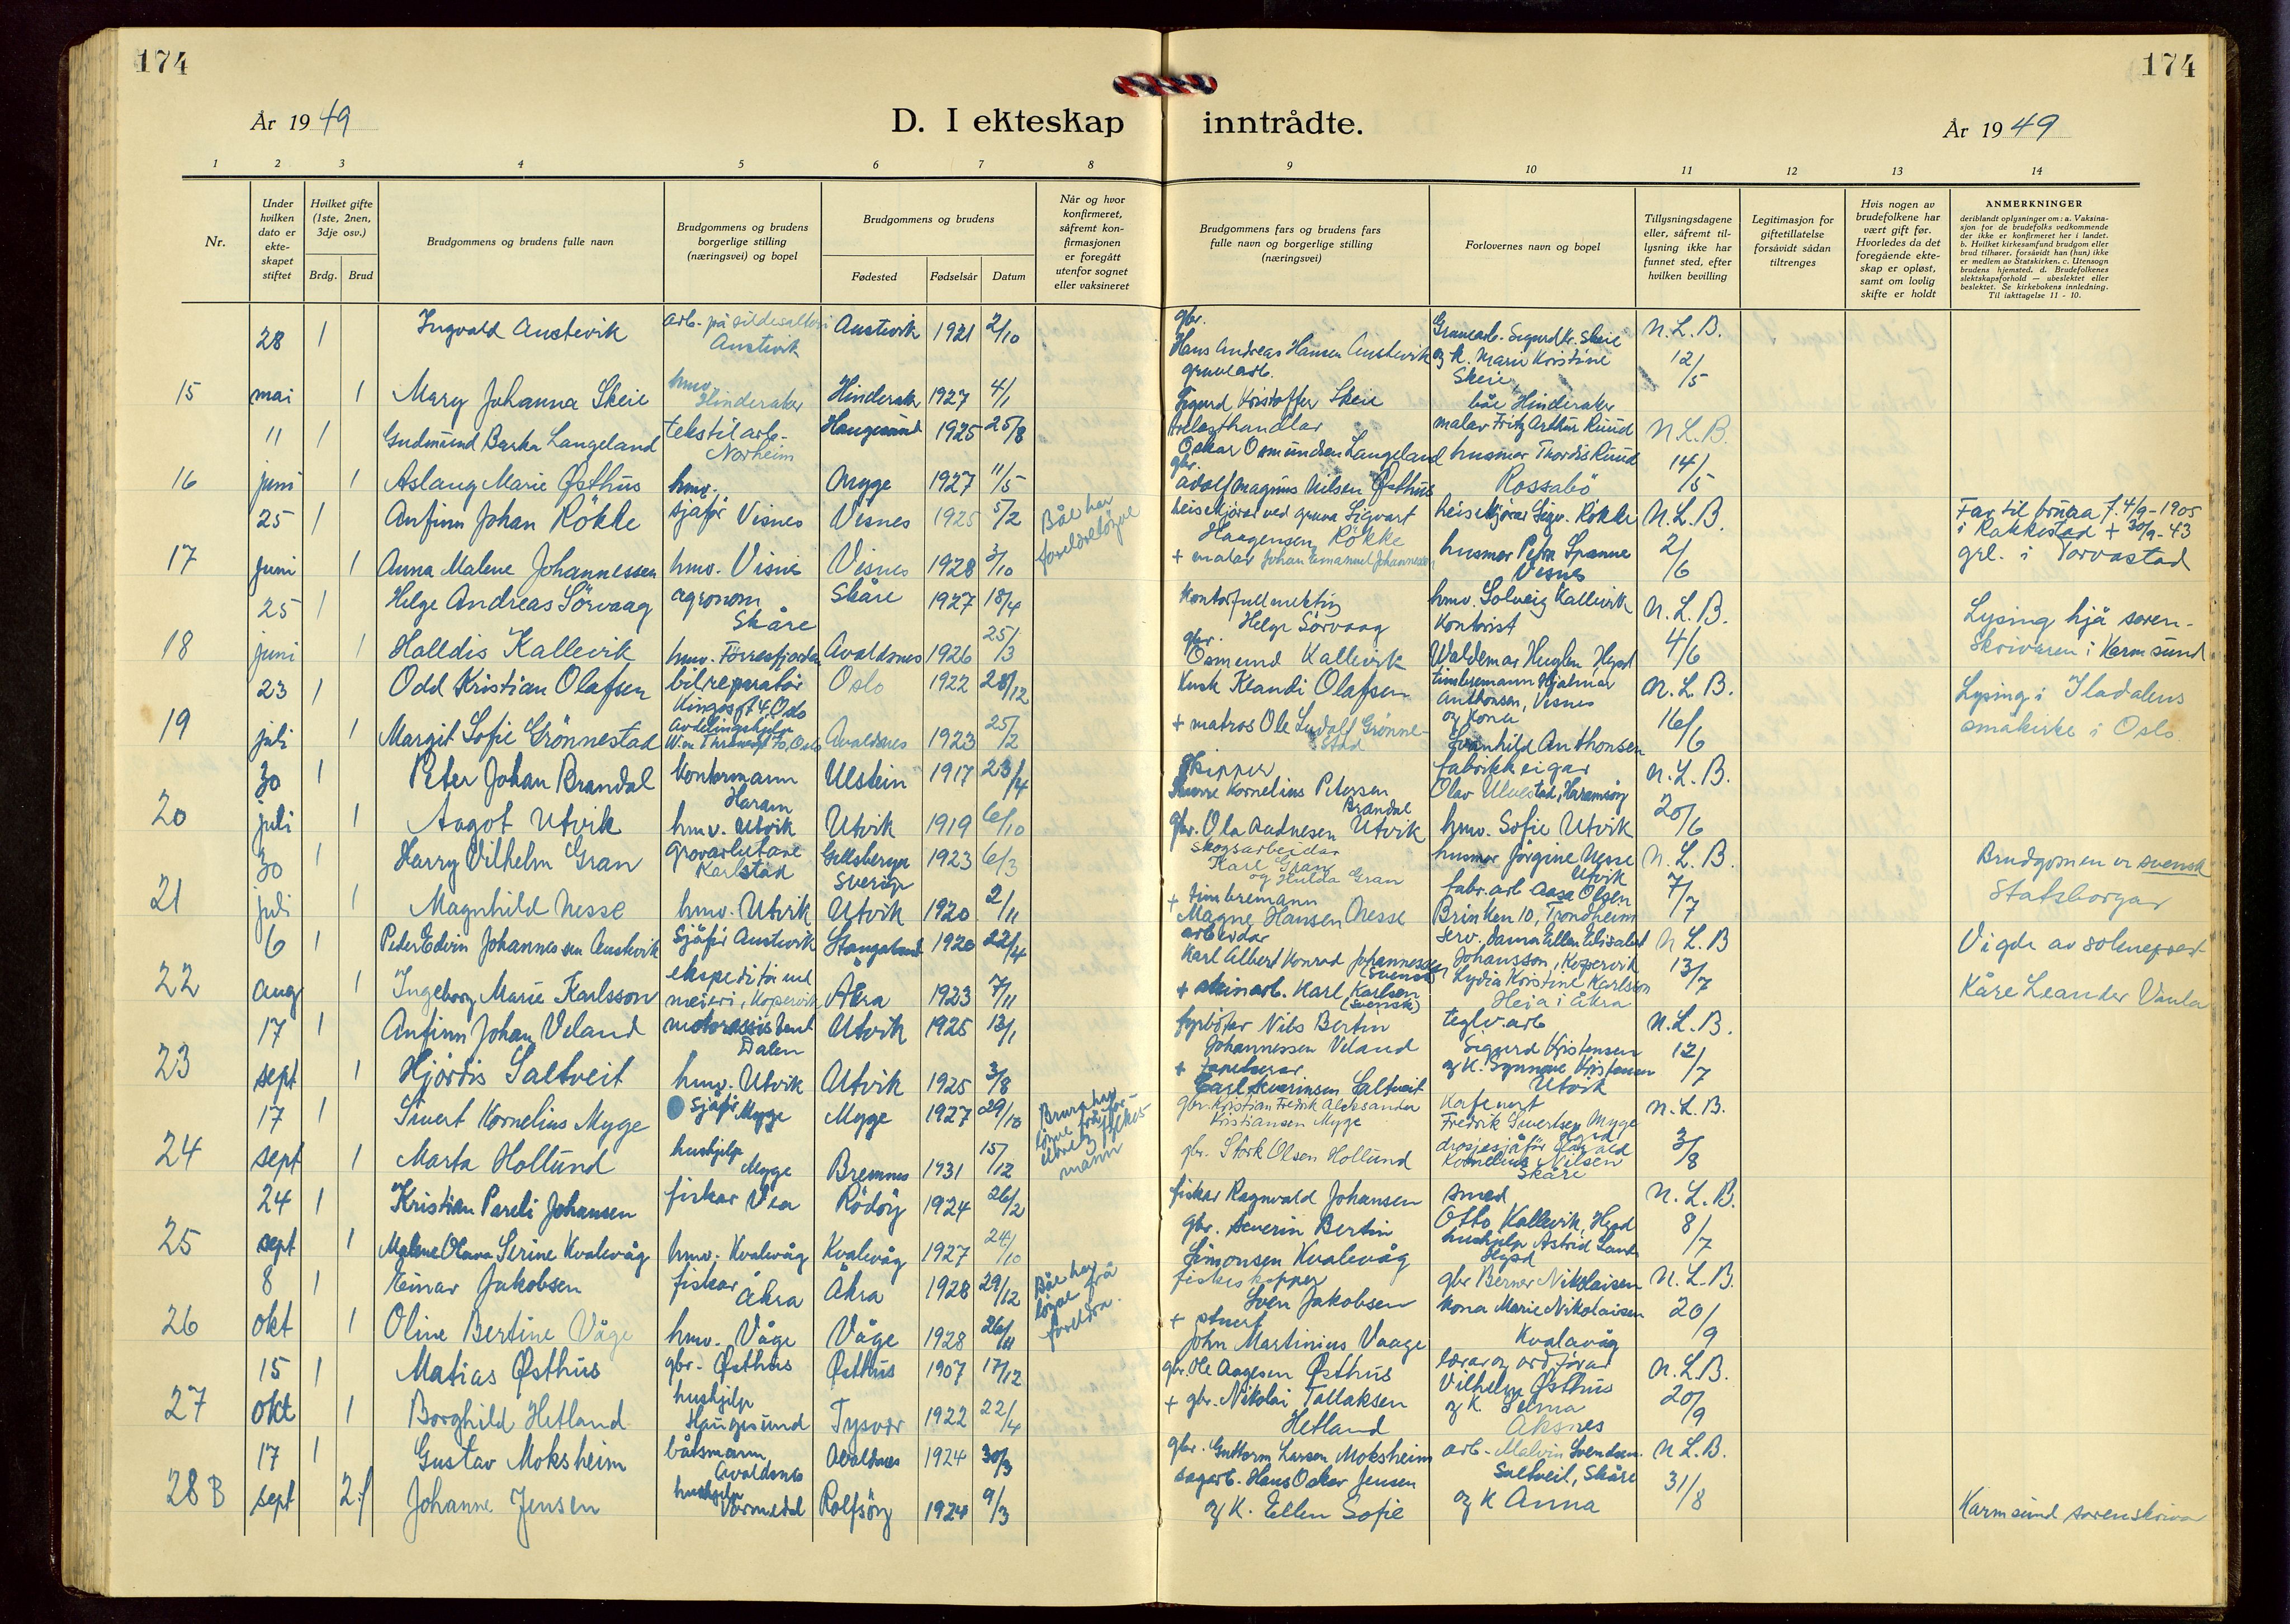 174
174
År 1949
D. I ekteskap inntrådte.
År 1949
1 2 3 4 5 6 7 8 9 10 11 12 13 14
Nr.
Under hvilken dato er ekte-skapet stiftet
Hvilket gifte (1ste, 2nen, 3dje osv.)
Brdg. Brud
Brudgommens og brudens fulle navn
Brudgommens og brudens borgerlige stilling (næringsvei) og bopel
Brudgommens og brudens
Fødested Fødselsår Datum
Når og hvor konfirmeret, såfremt kon-firmasjonen er foregått utenfor sognet eller vaksineret
Brudgommens fars og brudens fars fulle navn og borgerlige stilling (næringsvei)
Forlovernes navn og bopel
Tillysningsdagene eller, såfremt til-lysning ikke har funnet sted, efter hvilken bevilling
Legitimasjon for giftetillatelse forsåvidt sådan tiltrenges
Hvis nogen av brudefolkene har vært gift før. Hvorledes da det foregående ekte-skap er opløst, samt om lovlig skifte er holdt
ANMERKNINGER
deriblandt oplysninger om: a. Vaksina-sjon for de brudefolks vedkommende der ikke er konfirmeret her i landet. b. Hvilket kirkesamfund brudgom eller brud tilhører, forsåvidt han (hun) ikke er medlem av Statskirken. c. Utensogn brudens hjemsted. d. Brudefolkenes slektskapsforhold — ubeslektet eller beslektet. Se kirkebokens innledning. Til iakttagelse 11 - 10.
28 1 Ingvald Austevik arb. på sildesalteri Austvik Austvik 1921 2/10 gbr. Hans Andreas Hansen Austevik Gruvearb. Sigurd Kr. Skeie N. L. B.
15 mai 1 Mary Johanna Skeie hmv. Hinderaker Hinderaker 1927 4/1 gruvearb. Sigurd Kristoffer Skeie og k. Marie Kristine Skeie, båe Hinderaker 12/5
11 1 Gudmund Barka Langeland tekstilarb. Norheim Haugesund 1925 25/8 trelasthandlar Oskar Osmundsen Langeland malar Fritz Arthur Ruud N. L. B.
16 juni 1 Aslaug Marie Østhus hmv. Mygge 1927 11/5 gbr. Adolf Magnus Nilsen Østhus husmor Thordis Ruud Rossabö 14/5
25 1 Anfinn Johan Rökke sjåför Visnes Visnes 1925 5/2 Båe har foreldreløyve heisekjörar ved gruva Sigvart Haagensen Rökke heisekjörar Sigv. Rökke N. L. B. Far til brura f. 4/9-1905
17 juni 1 Anna Malene Johannessen hmv. Visnes Visnes 1928 3/10 + malar Johan Emanuel Johannessen husmor Petra Spanne Visnes 2/6 i Rakkestad + 30/9-43 grl. i Torvastad
25 1 Helge Andreas Sörvaag agronom Skåre Skåre 1927 18/4 Kontorfullmektig Helge Sörvaag hmv. Solveig Kallevik N. L. B. Lysing hjå soren-
18 juni 1 Halldis Kallevik hmv. Förresfjorden Avaldsnes 1926 25/3 gbr. Osmund Kallevik Kontorist Waldemar Huglen Hgsd 4/6 skrivaren i Karmsund
23 1 Odd Kristian Olafsen bilreparatör Kingosgt 4, Oslo Oslo 1922 28/12 Kusk Klandi Olafsen timbremann Hjalmar Anthonsen, Visnes N. L. B. Lysing i Iladalens
19 juli 1 Margit Sofie Grönnestad avdelingshjelp Oslo Avaldsnes 1923 25/2 + matros Ole Ludolf Grönnestad og kona Svanhild Anthonsen 16/6 småkirke i Oslo.
30 1 Peter Johan Brandal Kontormann Haram Ulstein 1917 23/4 Skipper Kornelius Petersen Brandal fabrikkeigar Olav Ulvestad, Haramsöy N. L. B.
20 juli 1 Aagot Utvik hmv. Utvik Utvik 1919 6/10 gbr. Ola Aadnesen Utvik hmv. Sofie Utvik 20/6
30 1 Harry Vilhelm Gran grovarbetare Karlstad Sverige 1923 6/3 skogsarbeidar Karl Gran og Hulda Gran husmor Jörgine Nesse Utvik N. L. B. Brudgomen er svensk
21 juli 1 Magnhild Nesse hmv. Utvik Utvik 1920 2/11 + timbremann Magne Hansen Nesse fabr. arb Aase Olsen Brinken 10, Trondheim 7/7 statsborgar
6 1 Peder Edvin Johannessen Austevik Sjåför Austevik Stangeland 1920 22/4 arbeidar Karl Albert Konrad Johannessen (Svensk) serv. dama Ellen Elisabet Johansson, Kopervik N. L. B Vigde av sokneprest
22 aug 1 Ingeborg Marie Karlsson ekspeditör ved meieri, Kopervik Åkra 1923 7/11 + steinarb. Karl Karlsen (svensk) Lydia Kristine Karlsson Heia i Åkra 13/7 Kåre Leander Vaula
17 1 Anfinn Johan Veland motorassistent Dalen Utvik 1925 13/1 fyrböter Nils Bertin Johannessen Veland teglv. arb Sigurd Kristensen N. L. B.
23 sept 1 Hjördis Saltveit hmv. Utvik Utvik 1925 3/8 + tapetserar Carl Severinsen Saltveit og k. Synnøve Kristensen Utvik 12/7
17 1 Sivert Kornelius Mygge sjåför Mygge Mygge 1927 29/10 gbr. Kristian Fredrik Aleksander Kristiansen Mygge Kafevert Fredrik Sivertsen Mygge Hgsd N. L. B.
24 sept 1 Marta Hollund hushjelp Mygge Bremnes 1931 15/12 gbr. Störk Olsen Hollund drosjesjåför Kornelius Nilsen Skåre 3/8
24 1 Kristian Pareli Johansen fiskar Vea Rödöy 1924 26/2 fiskar Ragnvald Johansen smed Otto Kallevik, Hgsd N. L. B.
25 sept 1 Malene Olava Serine Kvalevåg hmv. Kvalevåg Kvalevåg 1927 24/10 gbr. Severin Bertin Simonsen Kvalevåg hushjelp Astrid Hgsd 8/7
8 1 Einar Jakobsen fiskar Åkra Åkra 1928 29/12 Båe har löyve frå foreldra. fiskeskipper Sven Jakobsen gbr Berner Nikolaisen N. L. B.
26 okt 1 Oline Bertine Våge hmv. Våge Våge 1928 26/11 + stuert John Martinius Vaage kona Marie Nikolaisen Kvalavåg 20/9
15 1 Matias Østhus gbr. Østhus Østhus 1907 17/12 gbr. Ole Aagesen Østhus lærar og ordförar Vilhelm Østhus N. L. B.
27 okt 1 Borghild Hetland hushjelp Haugesund Tysvær 1922 22/4 + gbr. Nikolai Tallaksen Hetland og k. Selma Aksnes 20/9
17 1 Gustav Moksheim båtsmann Avaldsnes Avaldsnes 1924 30/3 gbr. Guttorm Larsen Moksheim arb. Malvin Svendsen Saltveit, Skåre N. L. B.
28 B sept 2.f Johanne Jensen hushjelp Vormedal Rolfsöy 1924 9/3 sagarb. Hans Oskar Jensen og k. Ellen Sofie og k Anna 31/8 Karmsund sorenskrivar